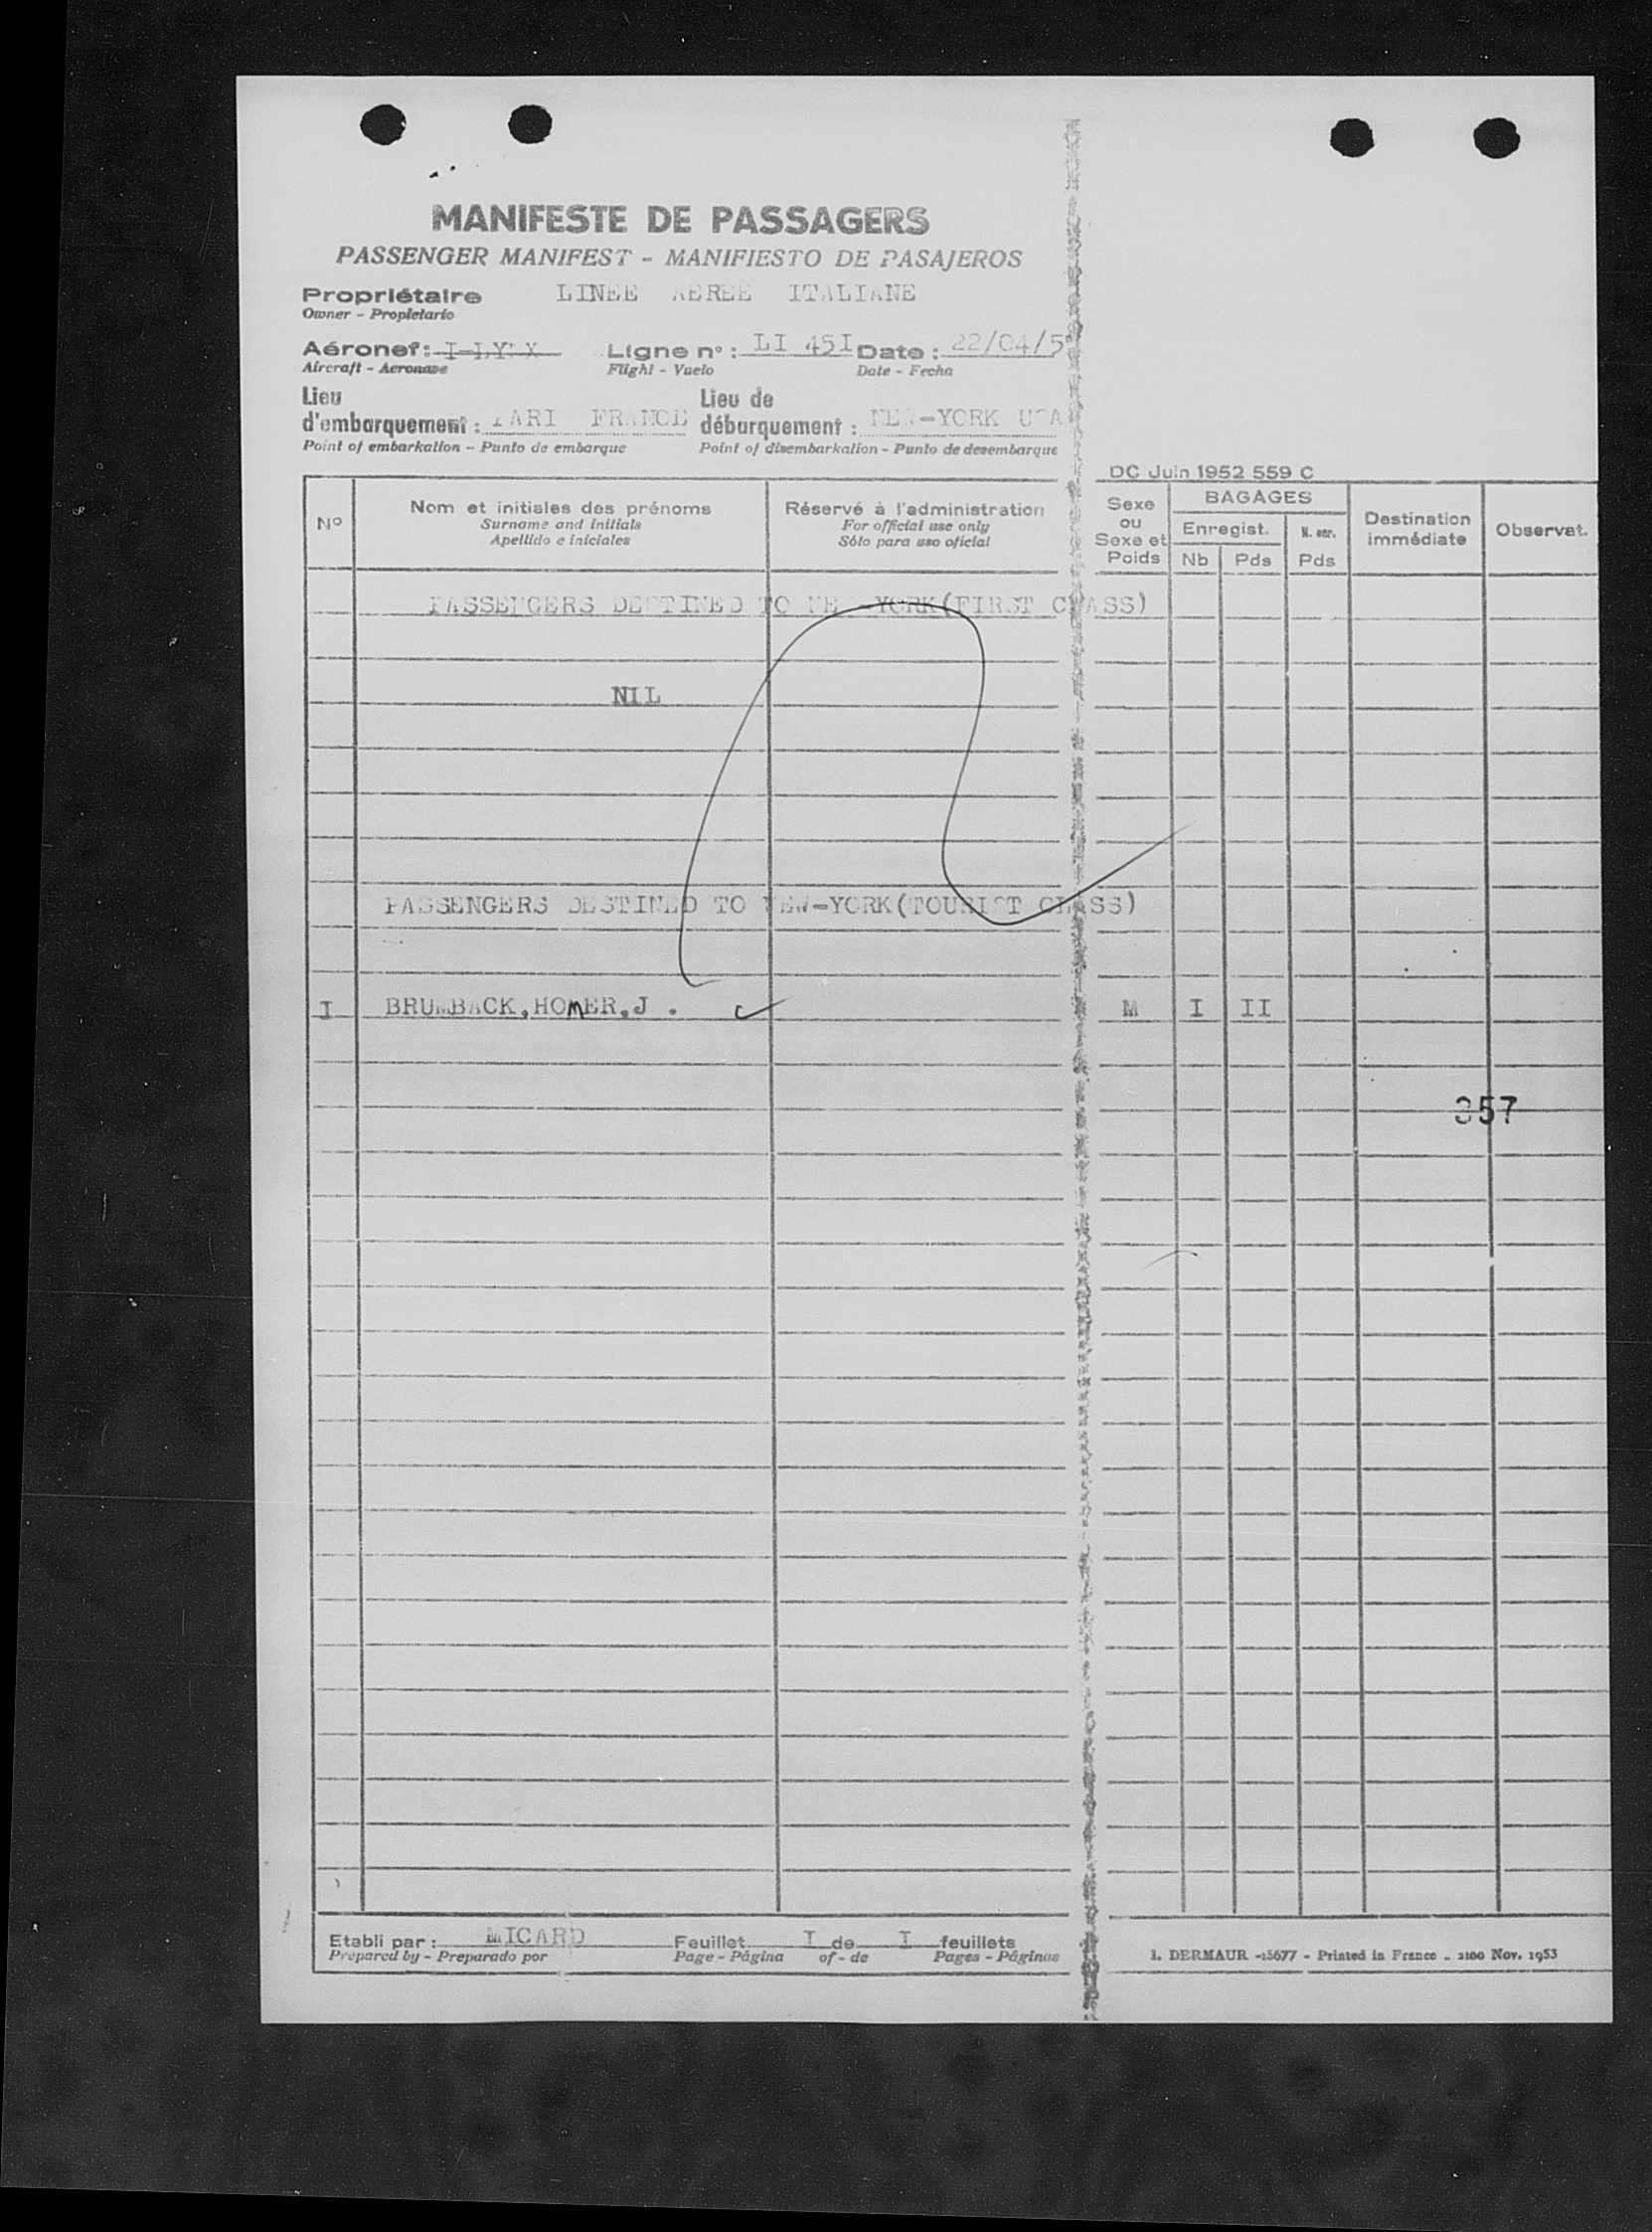 MANIFESTE DE PASSAGERS
PASSENGER MANIFEST - MANIFIESTO DE PASAJEROS
Propriétaire LINEE AEREE ITALIANE
Owner - Propietario
Aéronef: Ligne n°: LI 45I Date: 22/04/5
Aircraft - Aeronave Flight - Vuelo Date - Fecha
Lieu Lieu de
d'embarquement: PARI FRANCE débarquement: NEW-YORK USA
Point of embarkation - Punto de embarque Point of disembarkation - Punto de desembarque
DC Juin 1952 559 C
N° Nom et initiales des prénoms Réservé à l'administration Sexe BAGAGES Destination Observat.
Surname and initials For official use only ou Enregist. N. enr. immédiate
Apellido e iniciales Sólo para uso oficial Sexe et
Poids Nb Pds Pds
PASSENGERS DESTINED TO NE -YORK(FIRST CLASS)
NIL
PASSENGERS DESTINED TO NEW-YORK(TOURIST CLASS)
I BRUMBACK,HOMER,J . M I II
357
Etabli par: MICARD Feuillet I de I feuillets
Prepared by - Preparado por Page - Página of - de Pages - Páginas
I. DERMAUR -15677 - Printed in France - 2100 Nov. 1953